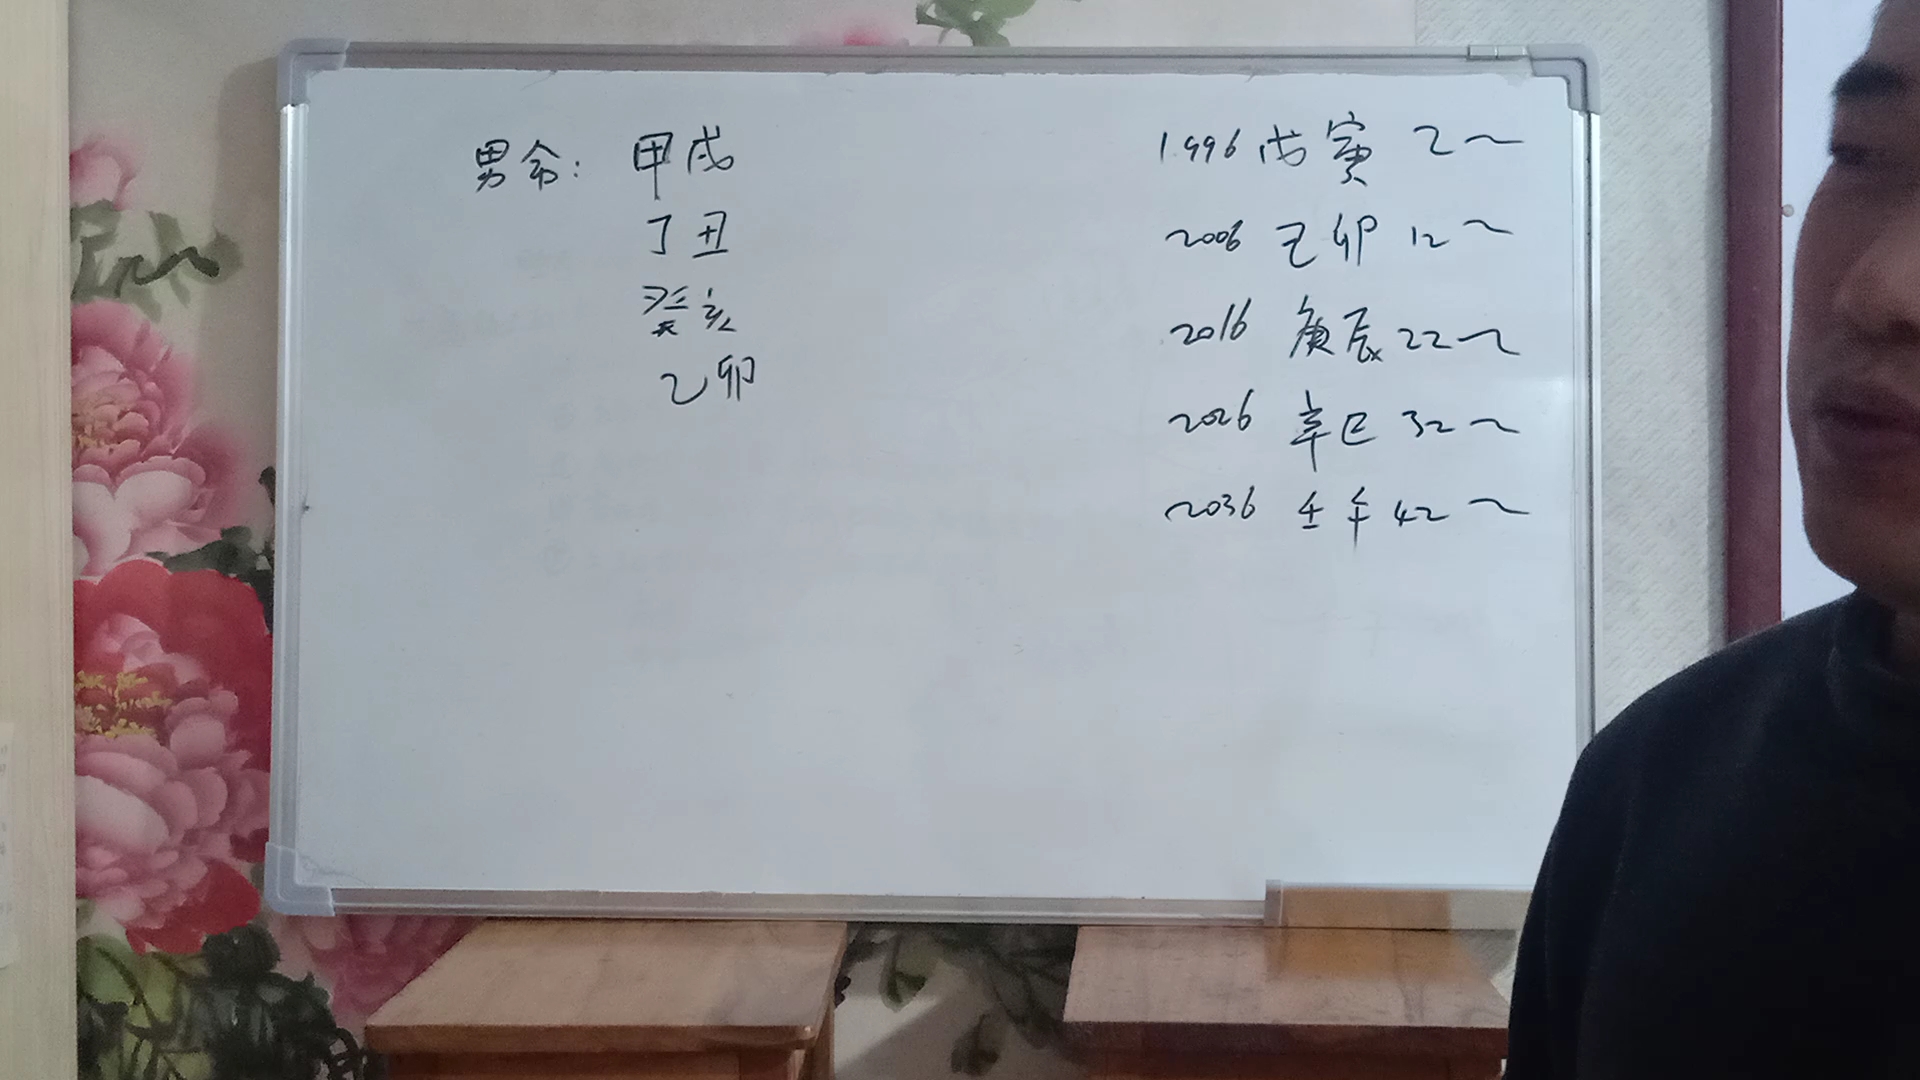 男命: 甲戌
丁丑
癸亥
乙卯
1996 戊寅 2~
2006 己卯 12~
2016 庚辰 22~
2026 辛巳 32~
2036 壬午 42~